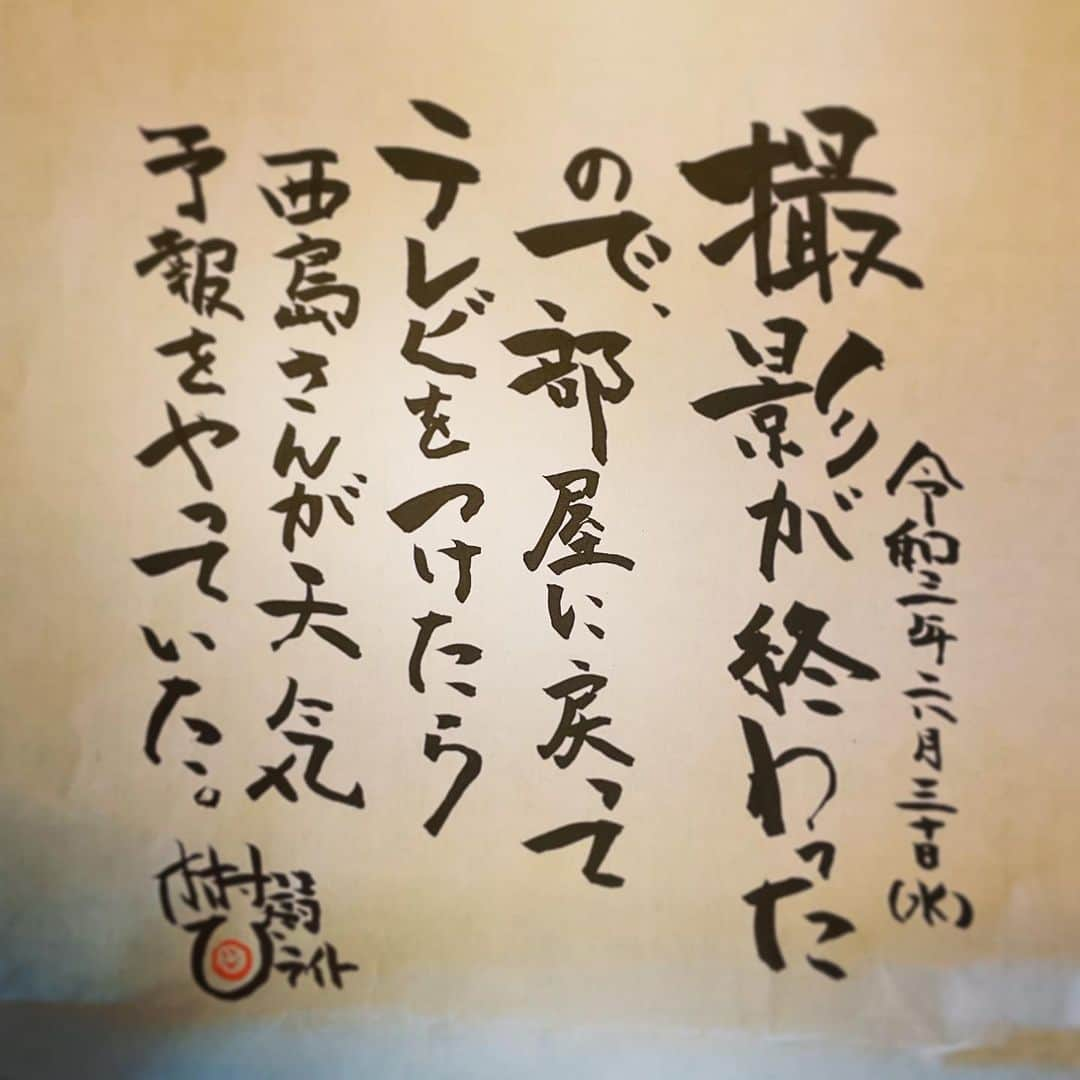 令和三年六月三十日(水)
撮影が終わった
ので、部屋に戻って
テレビをつけたら
西島さんが天気
予報をやっていた。
ライト